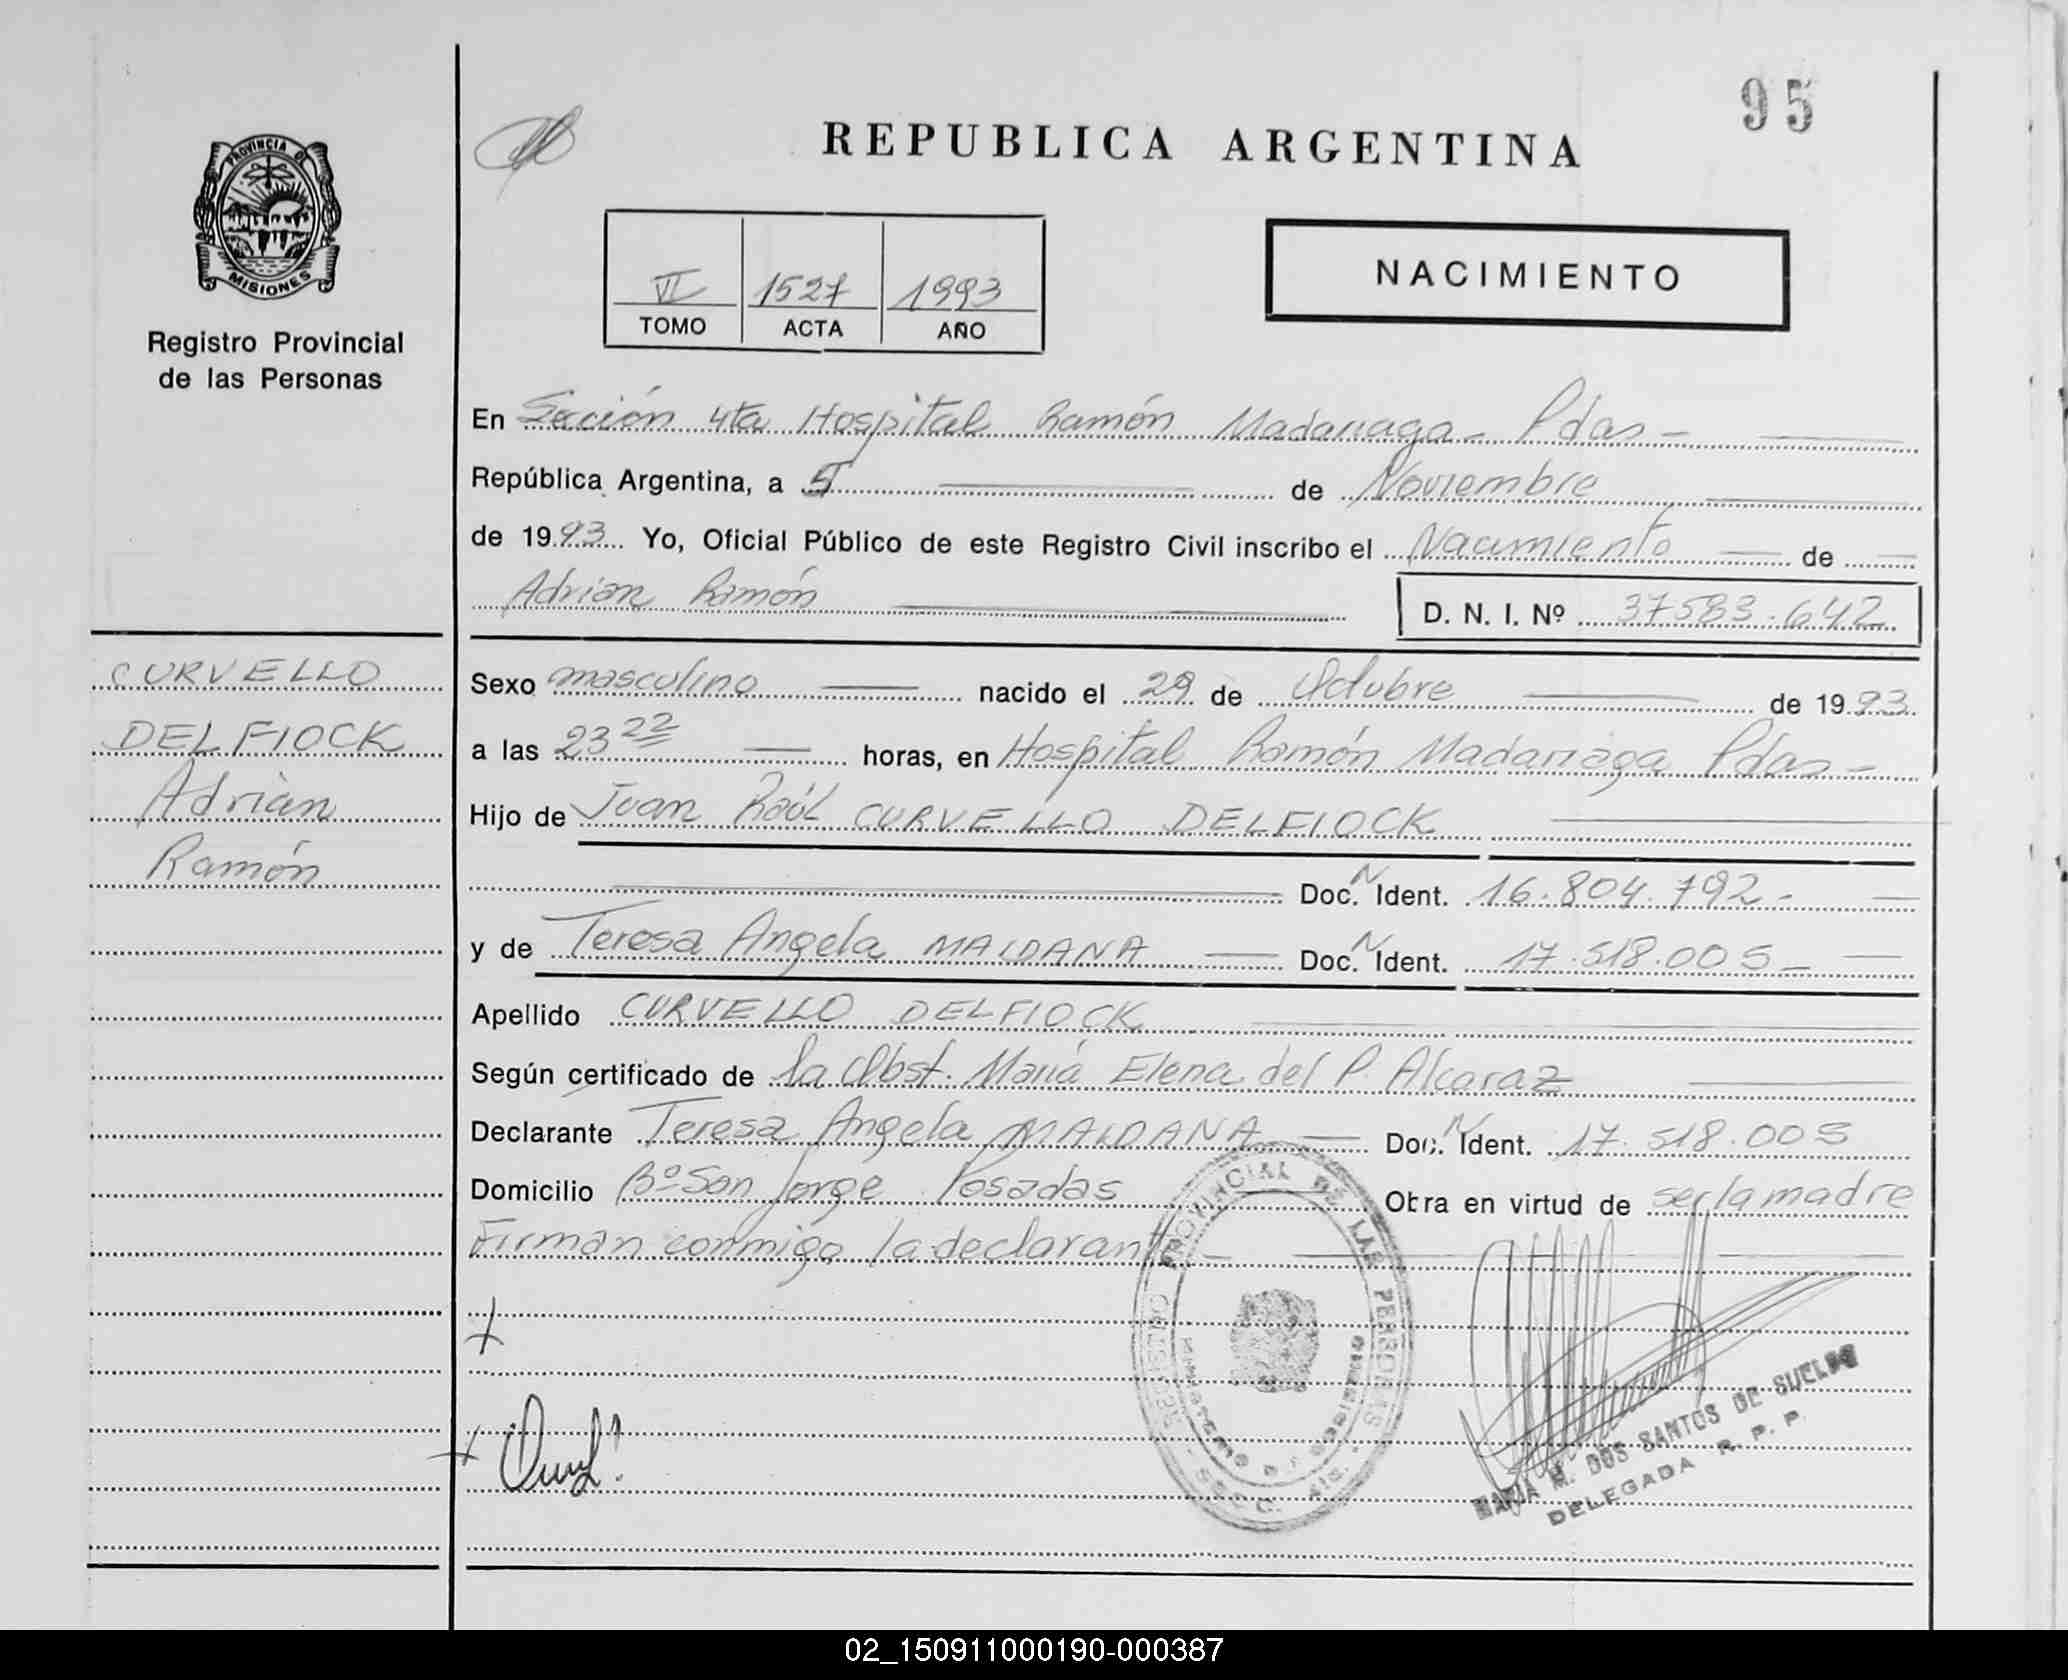 95
REPUBLICA ARGENTINA
PROVINCIA DE
MISIONES
Registro Provincial
de las Personas
VI 1527 1993
TOMO ACTA AÑO
NACIMIENTO
En Sección 4ta Hospital Ramón Madariaga - Pdas -
República Argentina, a 5 de Noviembre
de 1993 Yo, Oficial Público de este Registro Civil inscribo el Nacimiento de
Adrian Ramón D. N. I. Nº 37583.642
CURVELLO
DELFIOCK
Adrian
Ramón
Sexo masculino nacido el 29 de Octubre de 1993
a las 23 22 horas, en Hospital Ramón Madariaga Pdas -
Hijo de Juan Raúl CURVELLO DELFIOCK
Doc. N Ident. 16.804.792 -
y de Teresa Angela MALDANA Doc. N Ident. 17.518.005 -
Apellido CURVELLO DELFIOCK
Según certificado de la Obst. María Elena del P. Alcaraz
Declarante Teresa Angela MALDANA Doc. N Ident. 17.518.005
Domicilio Bº San Jorge Posadas Obra en virtud de ser la madre
Firman conmigo la declarante
REGISTRO PROVINCIAL DE LAS PERSONAS
MARIA M. DOS SANTOS DE SUELDO
DELEGADA R. P. P.
02_150911000190-000387